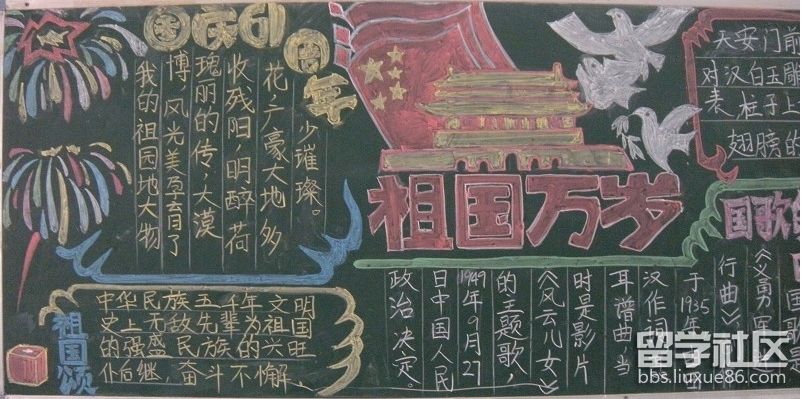 国庆61周年
我的祖园地大物
博 风光美孕育了
瑰丽的传,大漠
收残阳,明醉荷
花广豪大地 多
少璀璨。
祖国万岁
天安门前
对汉白玉雕
表 柱子上
翅膀的
祖国颂
中华民族五千年文明
史上无敌先辈为祖国
的强盛民族的兴旺
仆后继,奋斗不懈,
国歌
国歌是
《义勇军
行曲》
于1935年
汉作词
耳谱曲 当
时是影片
《风云儿女》
的主题歌,
1949年9月27
日中国人民
政治 决定。
留学社区
bbs.liuxue86.com